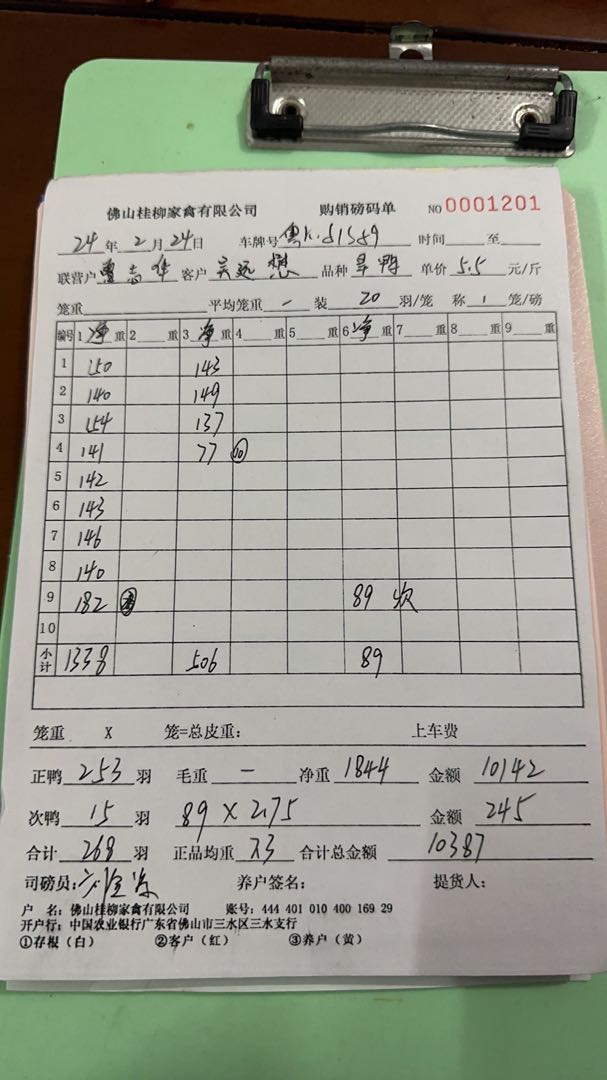 佛山桂柳家禽有限公司 购销磅码单 NO 0001201
24 年 2 月 24 日 车牌号 粤K·S1589 时间 至
联营户 客户 吴远 品种 旱鸭 单价 5.5 元/斤
笼重 平均笼重 — 装 20 羽/笼 称 1 笼/磅
编号 1 净 重 2 重 3 净 重 4 重 5 重 6 净 重 7 重 8 重 9 重
1 150 143
2 140 149
3 154 137
4 141 77 10
5 142
6 143
7 146
8 140
9 182 89 次
10
小计 1338 506 89
笼重 X 笼=总皮重: 上车费
正鸭 253 羽 毛重 — 净重 1844 金额 10142
次鸭 15 羽 89 X 2.75 金额 245
合计 268 羽 正品均重 7.3 合计总金额 10387
司磅员: 养户签名: 提货人:
户 名: 佛山桂柳家禽有限公司 账号: 444 401 010 400 169 29
开户行: 中国农业银行广东省佛山市三水区三水支行
①存根(白) ②客户(红) ③养户(黄)